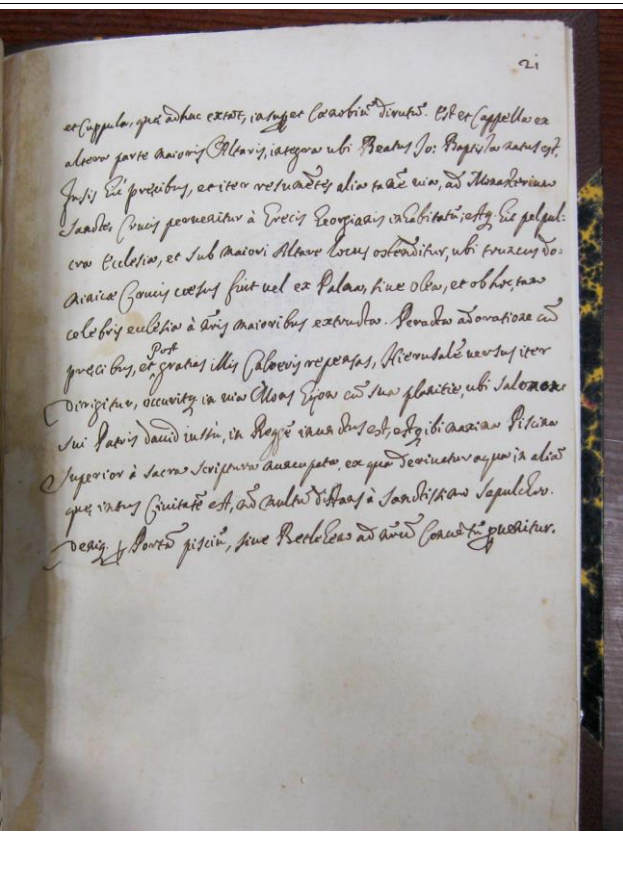 21
et Cuppula, quę adhuc extãt, insuper Cœnobiũ dirutũ. Est et Cappella ex
altera parte maioris Altaris, integra ubi Beatus Jo: Baptista natus est,
fusis hic pręcibus, et iter resumẽtes alia tamẽ via, ad Monasterium
Sanctę Crucis pervenitur à Gręcis Georgianis inhabitatũ; estq. hic pulpul-
cra Ecclesia, et sub maiori Altare locus ostẽditur, ubi truncus Do-
minicæ Crucis cæsus fuit vel ex Palma, sive olea, et ob hoc, tam
celebris eclesia à nr̃is maioribus extructa. Peracta adoratione cũ
pręcibus, et Post gratias illis Caloeris repensas, Hierusalẽ versus iter
Dirigitur, occuritq in via Mons Gion cũ sua planitie, ubi Salomone
sui Patris David iussu, in Regẽ inunctus est, estq ibi maxima Piscina
Superior à sacra scriptura nuncupata, ex qua derivatur aqua in aliã
quę intus Civitatẽ est, nõ multũ distans à Sanctissimo Sepulchro.
Deniq. ꝑ Portã pisciũ, sive Bethleem ad nr̃ũ Convẽtũ ꝑvenitur.